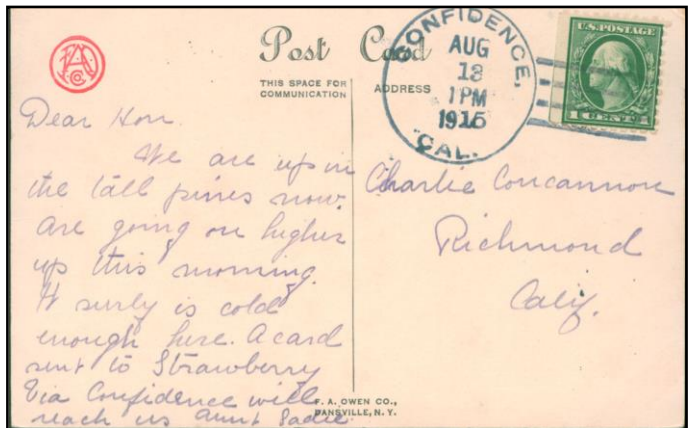 Post Card
THIS SPACE FOR
COMMUNICATION
ADDRESS
CONFIDENCE,
AUG
13
1PM
1915
CAL.
U.S. POSTAGE
1 CENT 1
F.A.O. Co.
Dear Hon.
We are up in
the tall pines now.
are going on higher
up this morning.
It surly is cold
enough here. A card
sent to Strawberry
Via Confidence will
reach us Aunt Sadie
Charlie Concannon
Richmond
Calif.
F. A. OWEN CO.,
DANSVILLE, N. Y.